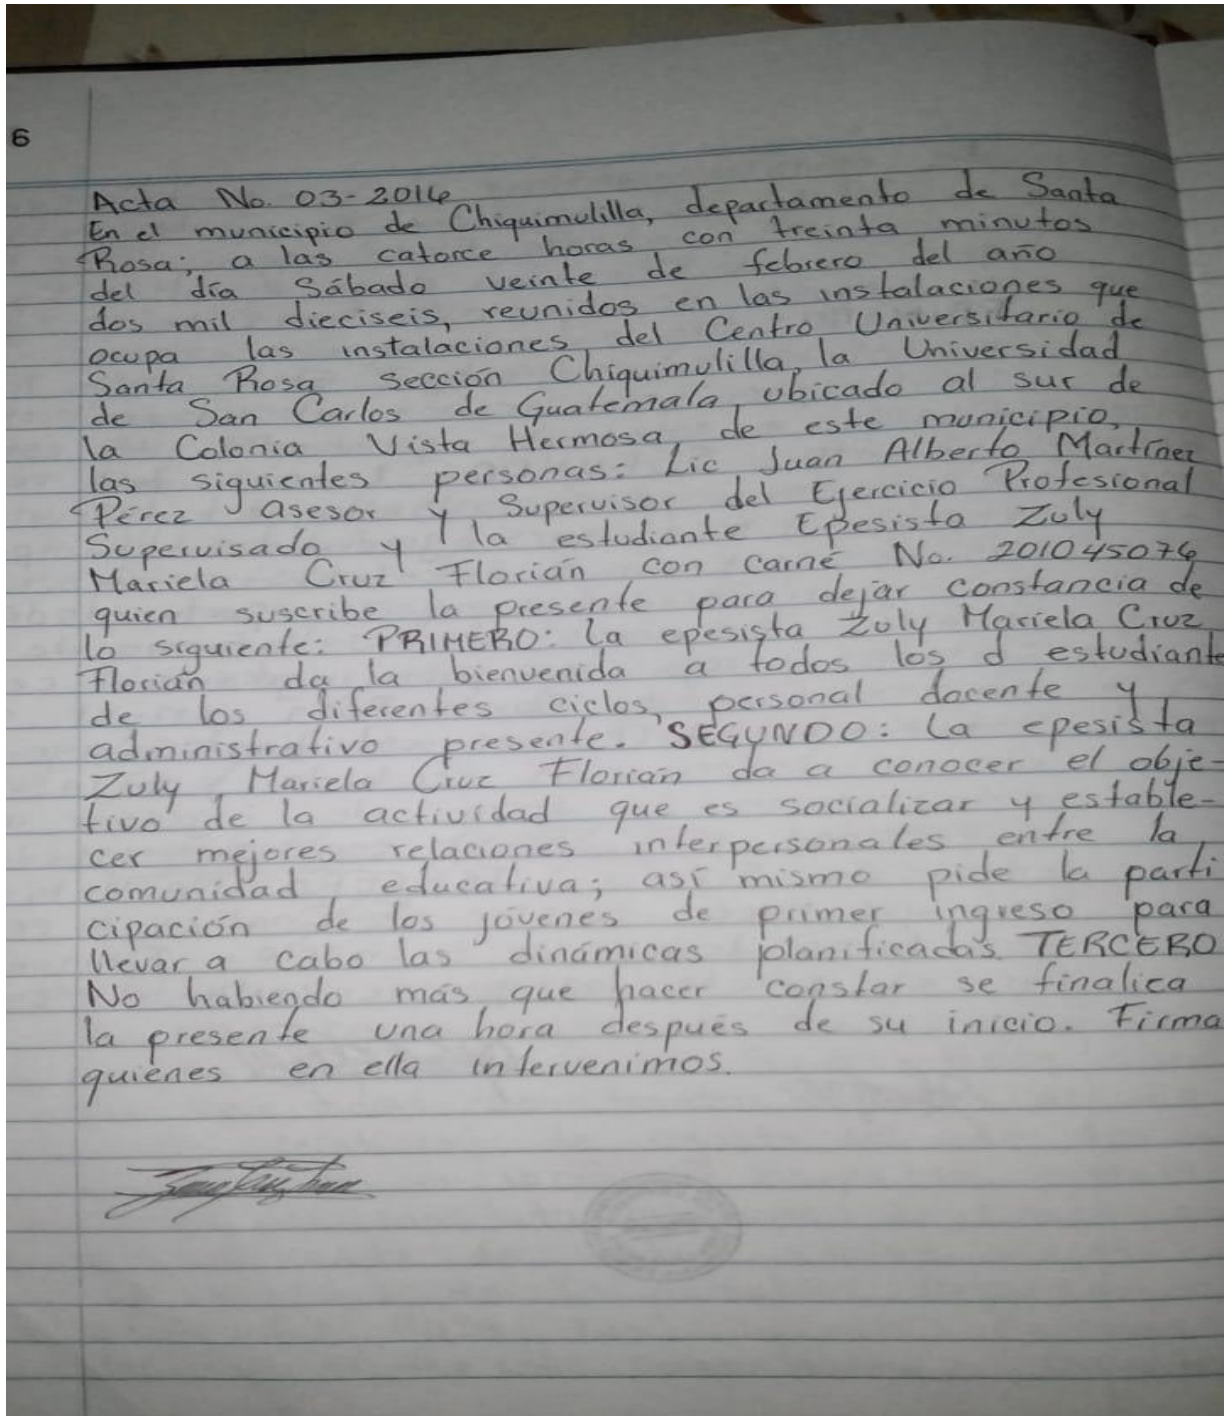 6
Acta No. 03-2016
En el municipio de Chiquimulilla, departamento de Santa
Rosa; a las catorce horas con treinta minutos
del día Sábado veinte de febrero del año
dos mil dieciseis, reunidos en las instalaciones que
ocupa las instalaciones del Centro Universitario de
Santa Rosa sección Chiquimulilla, la Universidad
de San Carlos de Guatemala, ubicado al sur de
la Colonia Vista Hermosa, de este municipio,
las siguientes personas: Lic Juan Alberto Martínez
Pérez asesor y Supervisor del Ejercicio Profesional
Supervisado y la estudiante Epesista Zuly
Mariela Cruz Florián con carné No. 201045076
quien suscribe la presente para dejar constancia de
lo siguiente: PRIMERO: La epesista Zuly Mariela Cruz
Florián da la bienvenida a todos los d estudiante
de los diferentes ciclos, personal docente y
administrativo presente. SEGUNDO: La epesista
Zuly Mariela Cruz Florián da a conocer el obje-
tivo de la actividad que es socializar y estable-
cer mejores relaciones interpersonales entre la
comunidad educativa; así mismo pide la parti
cipación de los jóvenes de primer ingreso para
llevar a cabo las dinámicas planificadas. TERCERO
No habiendo más que hacer constar se finalica
la presente una hora después de su inicio. Firma
quiénes en ella intervenimos.